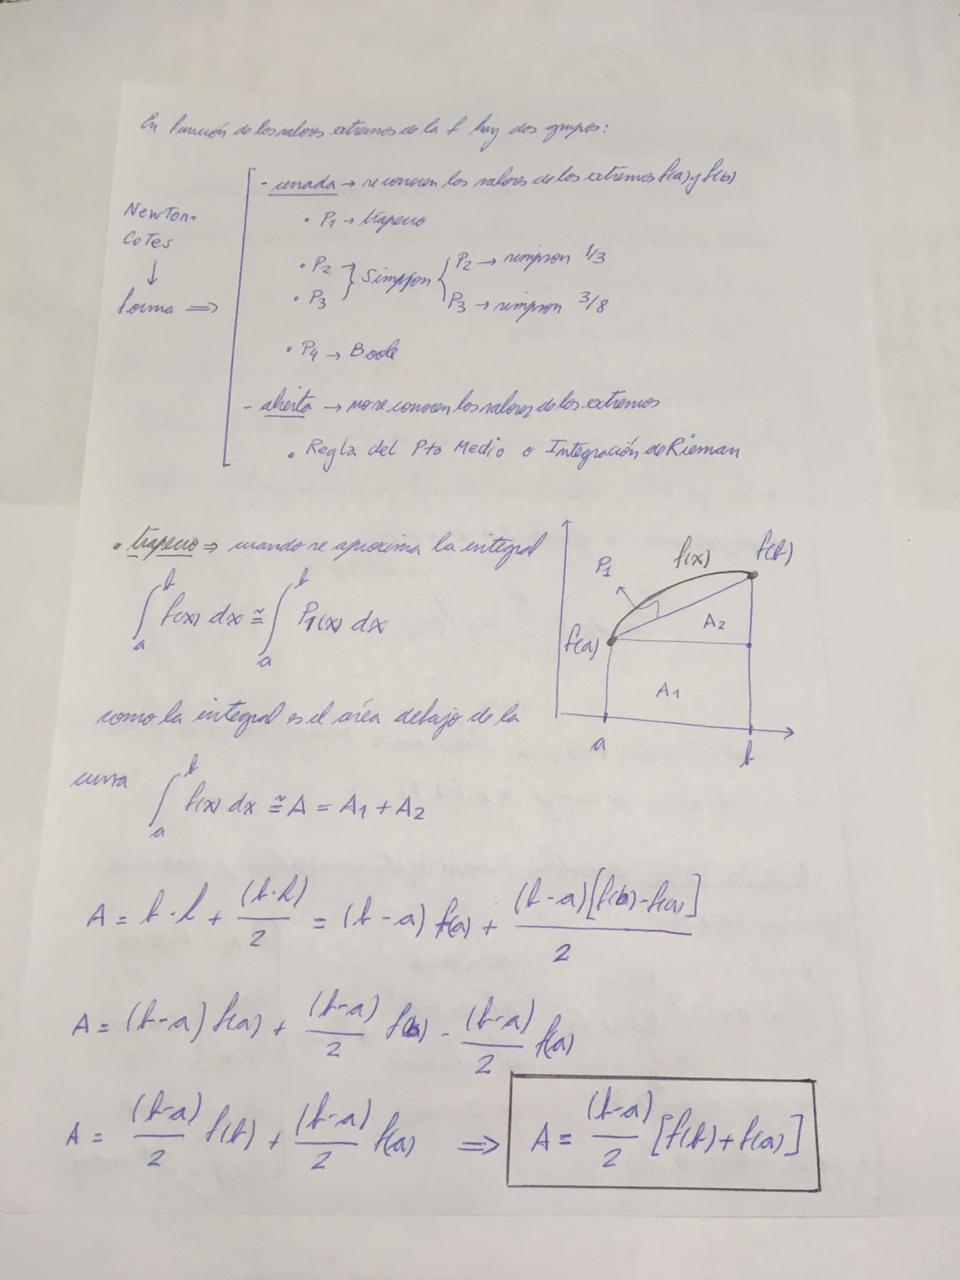 En función de los valores extremos de la f hay dos grupos:
- cerrada → se conocen los valores de los extremos f(a) y f(b)
Newton-
Cotes
↓
forma ⇒
• P₁ → trapecio
• P₂
• P₃ } Simpson { P₂ → simpson 1/3
P₃ → simpson 3/8
• P₄ → Boole
- abierta → no se conocen los valores de los extremos
• Regla del Pto Medio o Integración de Rieman
• trapecio ⇒ cuando se aproxima la integral
∫ₐᵇ f(x) dx ≅ ∫ₐᵇ P₁(x) dx
P₁ f(x) f(b)
A₂
f(a)
A₁
a b
como la integral es el área debajo de la
curva ∫ₐᵇ f(x) dx ≅ A = A₁ + A₂
A = b · h + (b·h)/2 = (b - a) f(a) + (b-a)[f(b)-f(a)]/2
A = (b-a) f(a) + (b-a)/2 f(b) - (b-a)/2 f(a)
A = (b-a)/2 f(b) + (b-a)/2 f(a) ⇒ A = (b-a)/2 [f(b)+f(a)]